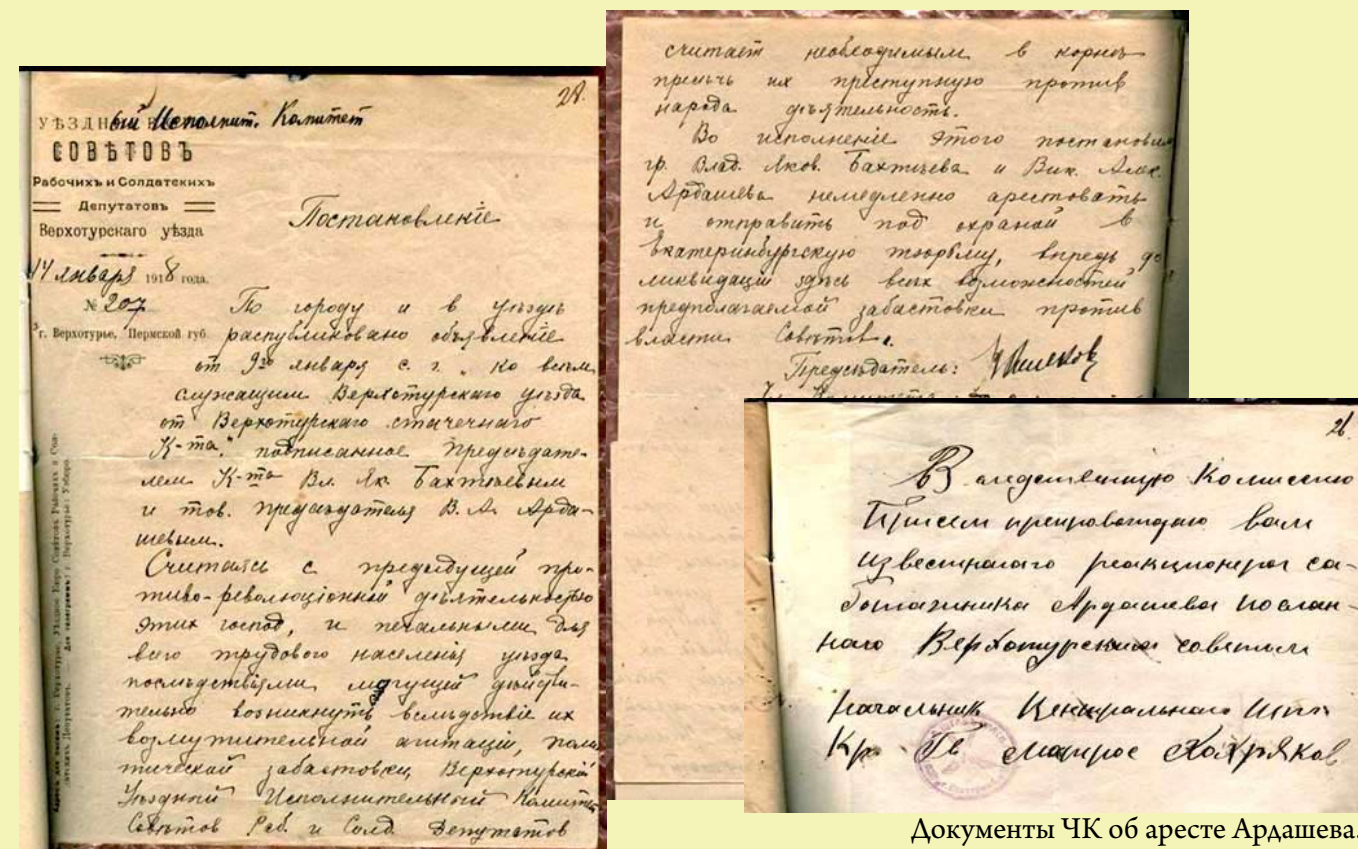 28.
Уѣздный Исполнит. Комитет
СОВѢТОВЪ
Рабочихъ и Солдатскихъ
Депутатовъ
Верхотурскаго уѣзда
14 января 1918 года.
№ 207
г. Верхотурье, Пермской губ.
Постановленіе
По городу и в уѣздѣ
распубликовано объявленіе
от 9го января с. г. „ко всѣм
служащим Верхотурскаго уѣзда
от Верхотурскаго стачечнаго
К-та", подписанное предсѣдате-
лем К-та Вл. Як. Бахтѣевым
и тов. предсѣдателя В. А. Арда-
шевым.
Считаясь с предыдущей про-
тиво-революціонной дѣятельностью
этих господ, и печальными для
всего трудового населенія уѣзда
послѣдствіями, могущей дѣйстви-
тельно возникнуть вслѣдствіе их
возмутительной агитаціи, поли
тической забастовки, Верхотурскій
Уѣздный Исполнительный Комитет
Совѣтов Раб. и Солд. Депутатов
считает необходимым в корнѣ
пресѣчь их преступную против
народа дѣятельность.
Во исполненіе этого постановил
гр. Влад. Яков. Бахтѣева и Вик. Алек.
Ардашева немедленно арестовать
и отправить под охраной в
Екатеринбургскую тюрьму, впредь до
ликвидаціи здѣсь всех возможностей
предполагаемой забастовки против
власти Совѣтов.
Предсѣдатель:
26.
В следственную Комиссию
При сем препровождаю вам
известнаго реакционера са-
ботажника Ардашева послан-
наго Верхотурским советом
Начальник Центральнаго Шта
Кр Гв матрос Хохряков
Документы ЧК об аресте Ардашева.